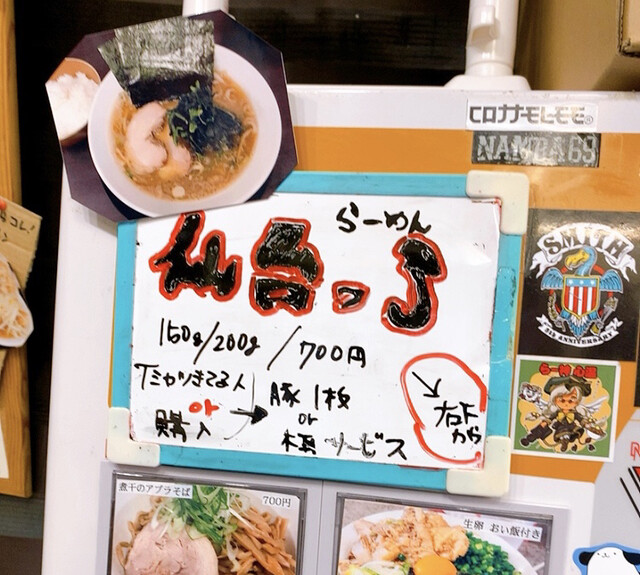 COTTMELEE®
NAMBA69
らーめん
仙台っ子
150g/200g/700円
Tシャツきてる人
or
購入
豚1枚
or
極サービス
右下
から
SMITH
5TH ANNIVERSARY
煮干のアブラそば
700円
生卵 おい飯付き